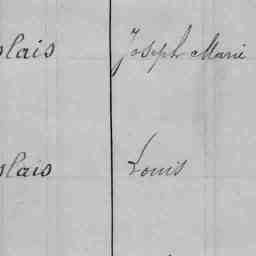 slais Joseph Marie
slais Louis